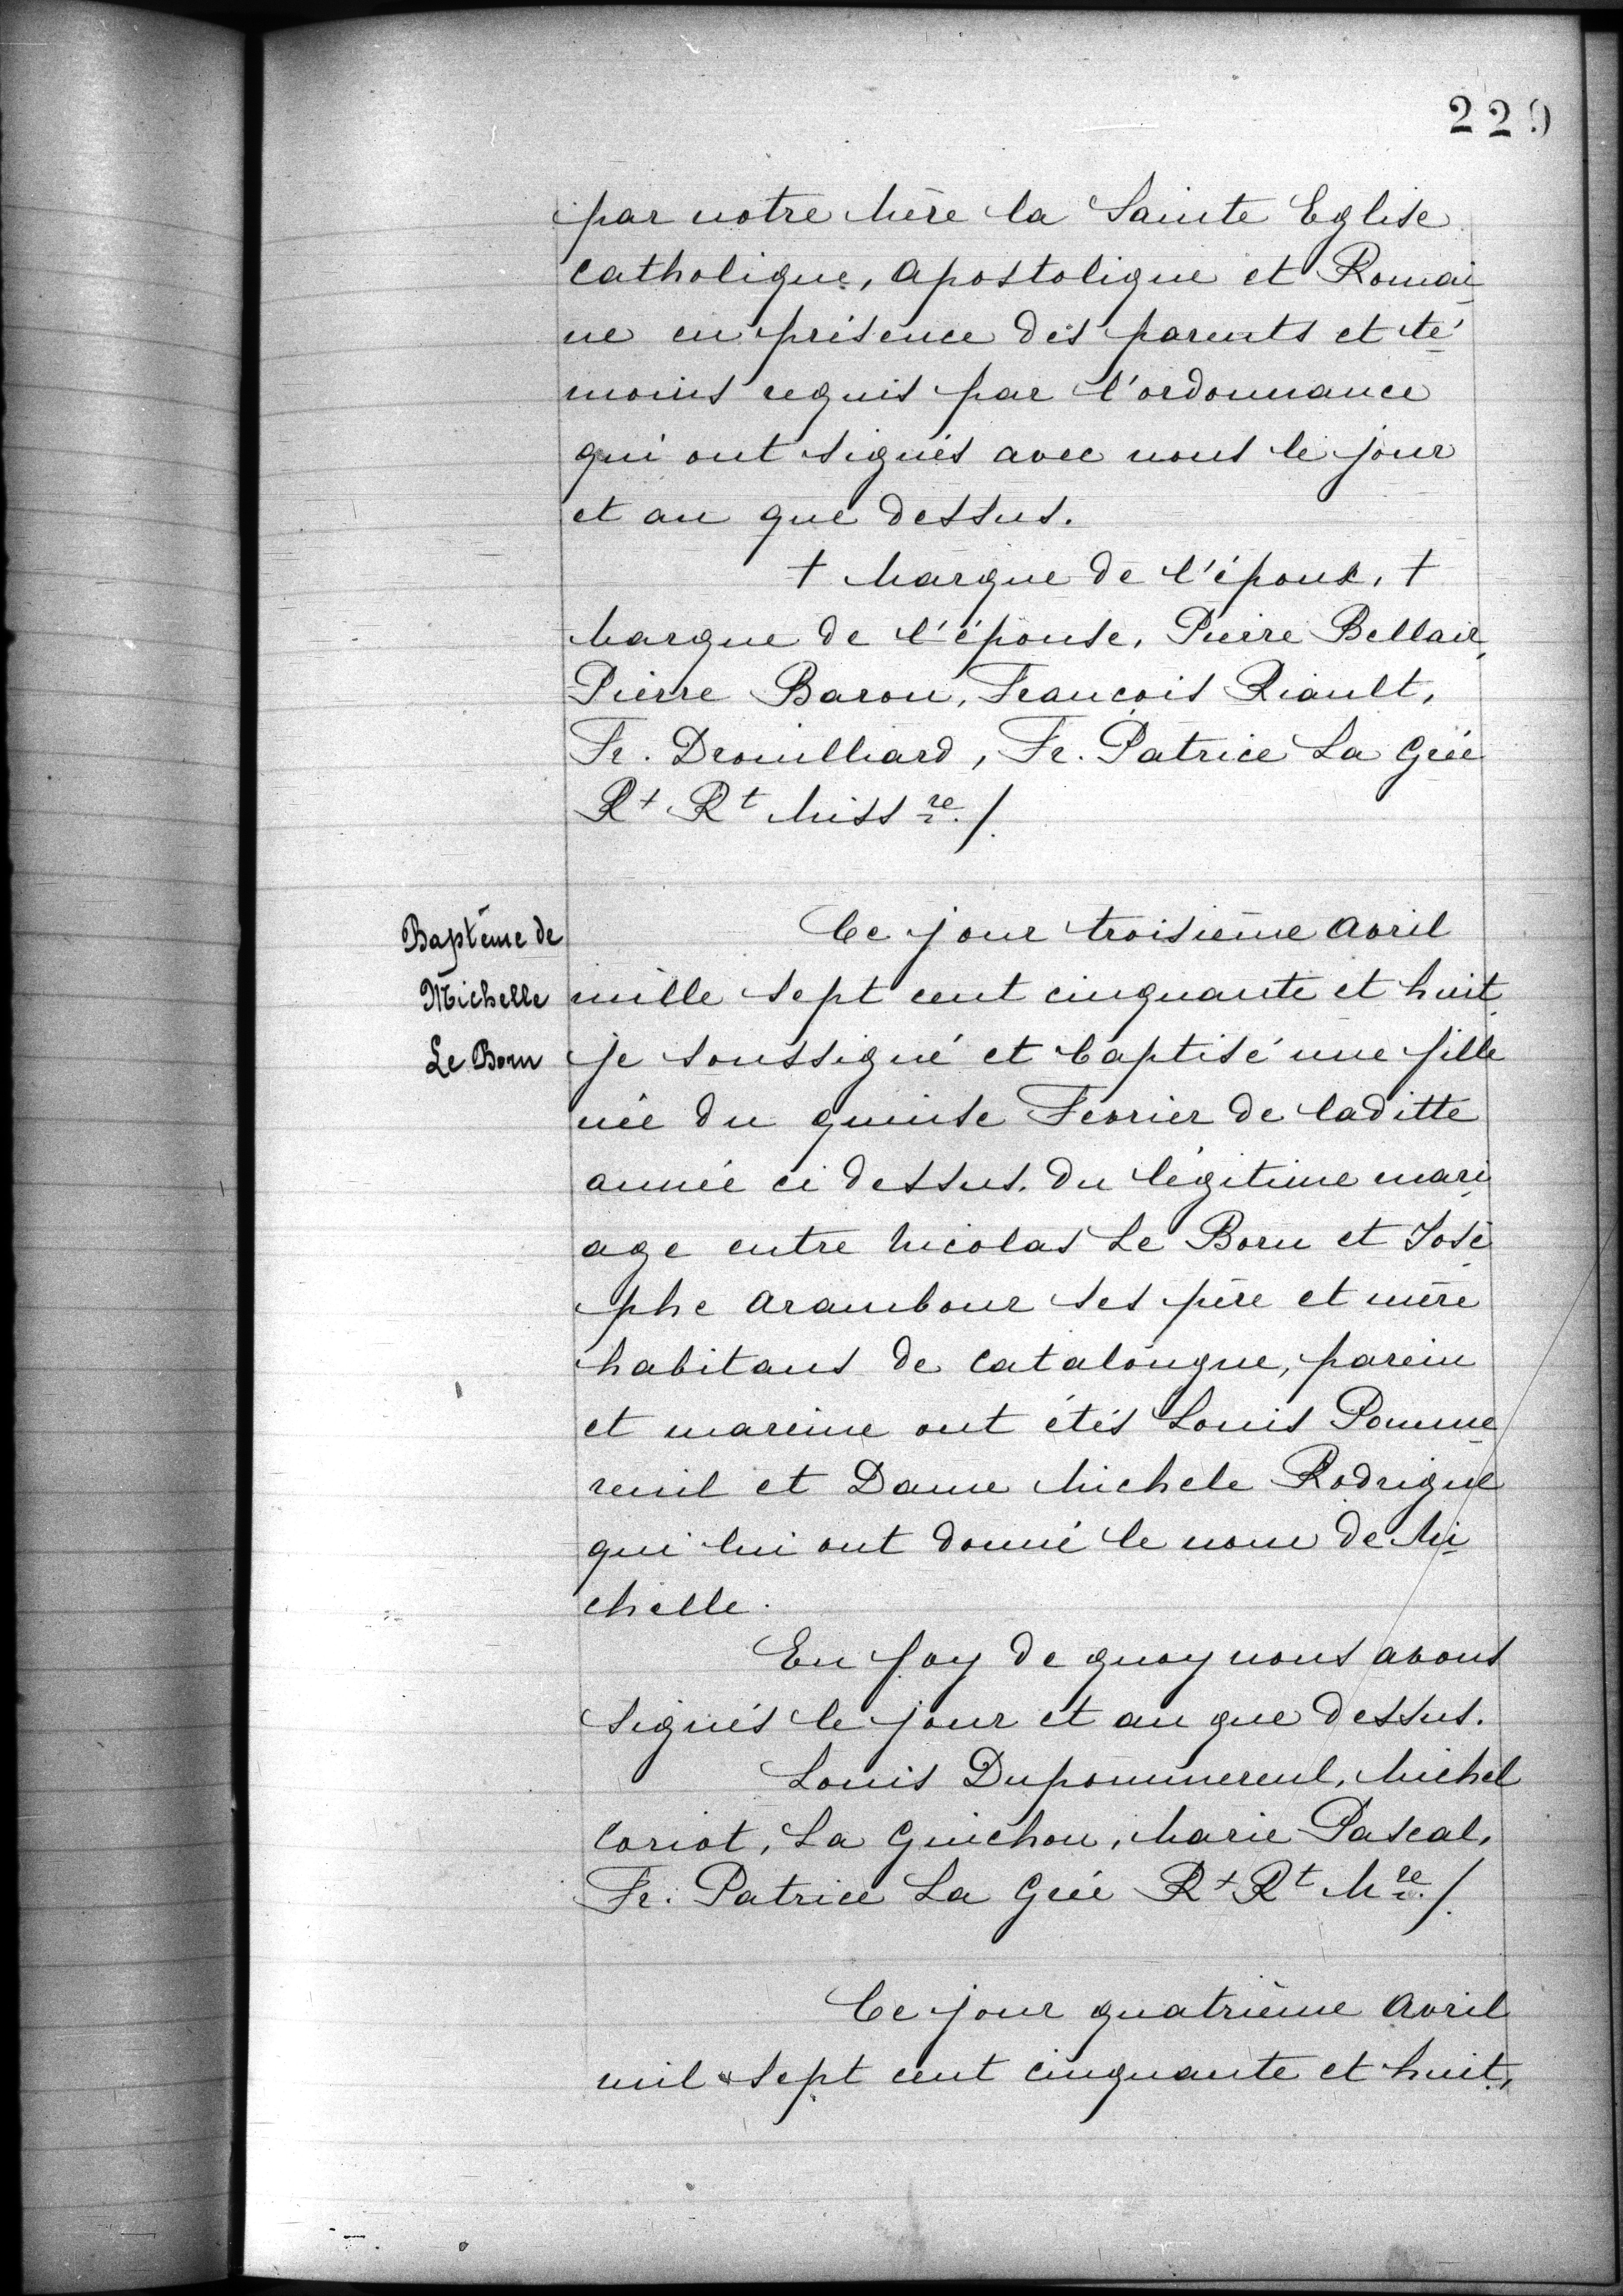 229
par notre Mère la Sainte Eglise
Catholique, Apostolique et Romai
ne en présence des parents et té
moins requis par l'ordonnance
qui ont signés avec nous le jour
et an que dessus.
+ Marque de l'époux, +
Marque de l'épouse, Pierre Bellair,
Pierre Baron, François Riault,
Fr. Drouilliard, Fr. Patrice La Grée
Rt Rt Missre./.
Baptême de
Michelle
Le Born
Ce jour troisième Avril
mille sept cent cinquante et huit,
je soussigné et baptisé une fille
née du quinse Fevrier de laditte
année ci dessus. du légitime mari
age entre Nicolas Le Born et José
phe Arambour ses père et mère
habitans de Catalongue, parein
et mareine ont étés Louis Pomme
reuil et Dame Michele Rodrigue
qui lui ont donné le nom de Mi
chelle.
En foy de quoy nous avons
signés le jour et an que dessus.
Louis Dupommereul, Michel
Coriot, La Guichon, Marie Pascal,
Fr. Patrice La Grée Rt Rt Mre./.
Ce jour quatrième Avril
mil sept cent cinquante et huit,